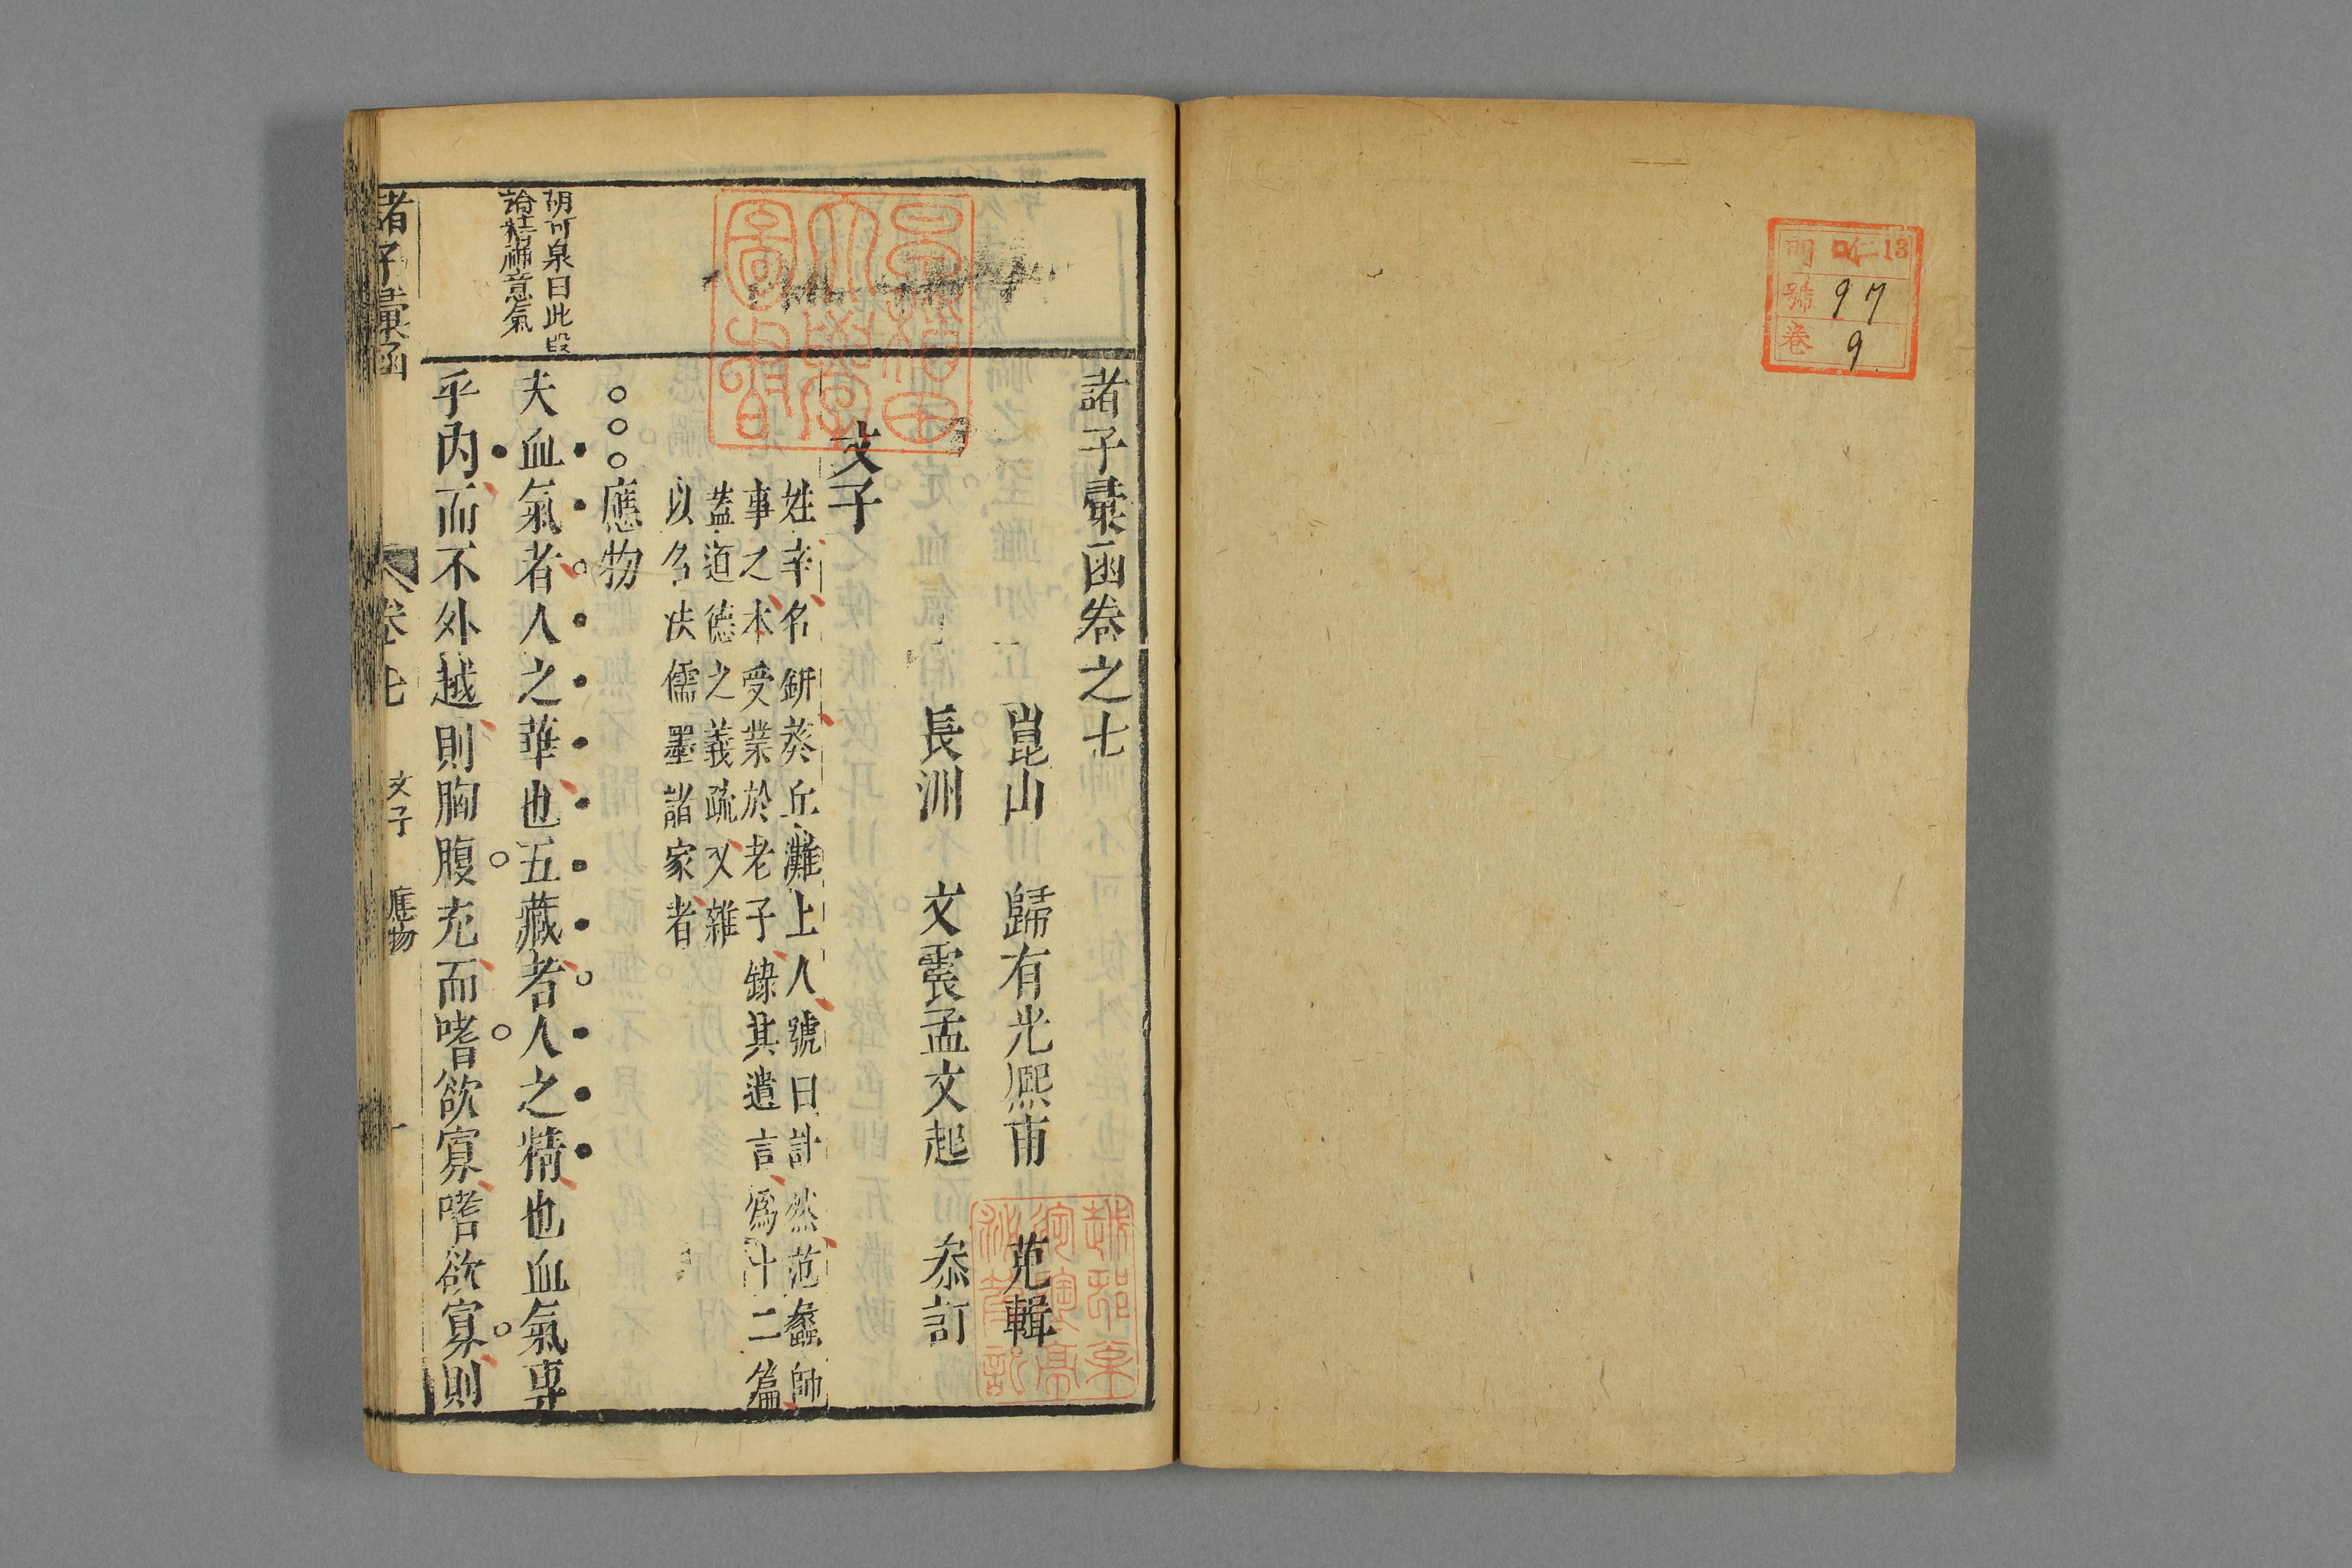 門 仁13
號 97
卷 9
諸子彙函卷之七
崑山 歸有光熙甫 蒐輯
長洲 文震孟文起 叅訂
早稻田大學圖書
文子
姓辛名鈃葵丘濮上人號曰計然范蠡師
事之本受業於老子錄其遺言爲十二篇
葢道德之義疏又雜
以名法儒墨諸家者
應物
胡可泉曰此段
論精神意氣
夫血氣者人之華也五藏者人之精也血氣專
乎內而不外越則胸腹充而嗜欲寡嗜欲寡則
諸子彙函 卷七 文子 應物 一